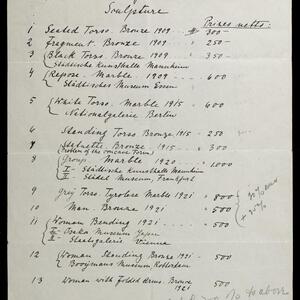 Sculpture
Prices netto:
1 Seated Torso. Bronze 1909 $ 300-
2 Fragment. Bronze 1909 " 250-
3 Black Torso. Bronze 1909 " 350-
Städtische Kunsthalle Mannheim
4 Repose - Marble 1909 " 600
Städtisches Museum Essen
5 White Torso. Marble 1915 " 600
Nationalgalerie Berlin
6 Standing Torso Bronze 1915 " 250
7 Statuette Bronze 1915 " 300
(Problem of the concave Form)
8 Group. Marble 1920 " 1000
I - Städtische Kunsthalle Mannheim
II - Städel Museum, Frankfurt
9 Grey Torso Tyrolese Marble 1921 " 800
10 Man. Bronze 1921 " 500
11 Woman Bending 1921 " 500
I - Osaka Museum Japan
II - Staatsgalerie Vienna
12 Woman Standing Bronze 1921 - 500
Booijmans Museum Rotterdam
13 Woman with Folded Arms. Bronze
to above